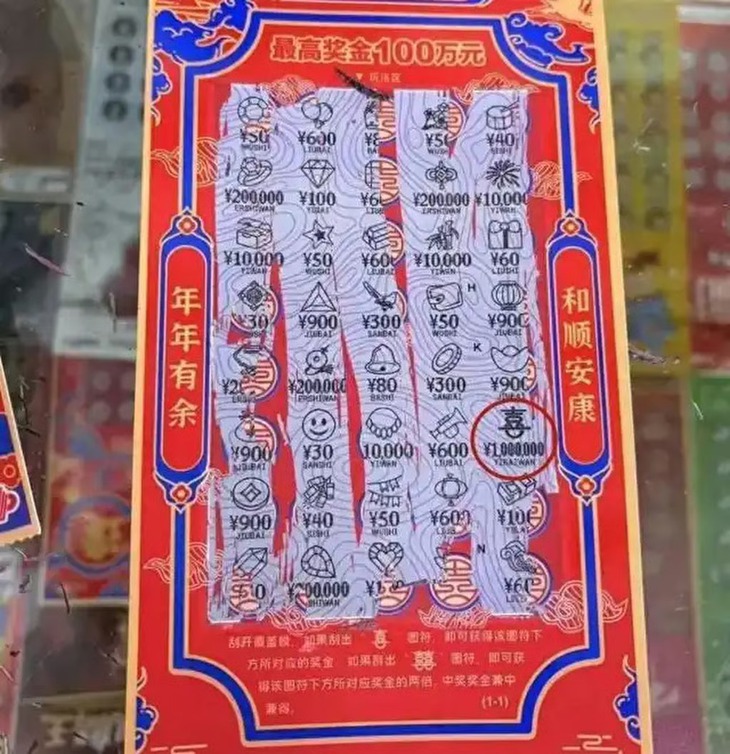 最高奖金100万元
▼ 玩法区
年年有余
和顺安康
¥50 ¥600 ¥50 ¥40
WUSHI LIUBAI WUSHI SISHI
¥200,000 ¥100 ¥200,000 ¥10,000
ERSHIWAN YIBAI ERSHIWAN YIWAN
¥10,000 ¥50 ¥600 ¥10,000 ¥60
YIWAN WUSHI LIUBAI YIWAN LIUSHI
H
¥30 ¥900 ¥300 ¥50 ¥900
SANSHI JIUBAI SANBAI WUSHI JIUBAI
K
¥200,000 ¥80 ¥300 ¥900
ERSHIWAN BASHI SANBAI JIUBAI
喜
¥900 ¥30 10,000 ¥600 ¥1,000,000
JIUBAI SANSHI YIWAN LIUBAI YIBAIWAN
¥900 ¥40 ¥50 ¥600 ¥100
JIUBAI SISHI WUSHI LIUBAI YIBAI
N
刮开覆盖膜，如果刮出 喜 图符，即可获得该图符下
方所对应的奖金，如果刮出 囍 图符，即可获
得该图符下方所对应奖金的两倍。中奖奖金兼中
兼得。 (1-1)